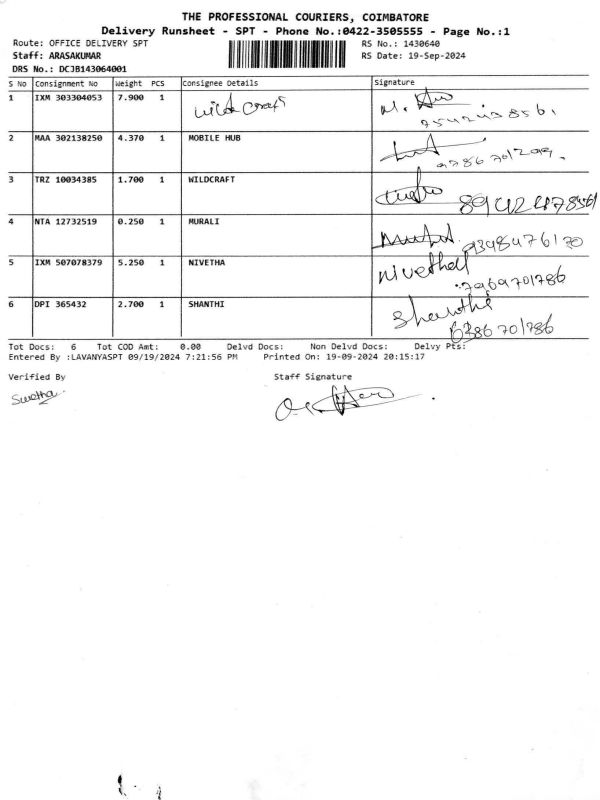 THE PROFESSIONAL COURIERS, COIMBATORE
Delivery Runsheet - SPT - Phone No.:0422-3505555 - Page No.:1
Route: OFFICE DELIVERY SPT RS No.: 1430640
Staff: ARASAKUMAR RS Date: 19-Sep-2024
DRS No.: DCJB143064001
S No Consignment No Weight PCS Consignee Details Signature
1 IXM 303304053 7.900 1 Wild Craft
2 MAA 302138250 4.370 1 MOBILE HUB
3 TRZ 10034385 1.700 1 WILDCRAFT
4 NTA 12732519 0.250 1 MURALI
5 IXM 507078379 5.250 1 NIVETHA Nivetha
7969701786
6 DPI 365432 2.700 1 SHANTHI Shanthi
6386701786
Tot Docs: 6 Tot COD Amt: 0.00 Delvd Docs: Non Delvd Docs: Delvy Pts:
Entered By :LAVANYASPT 09/19/2024 7:21:56 PM Printed On: 19-09-2024 20:15:17
Verified By Staff Signature
Swetha